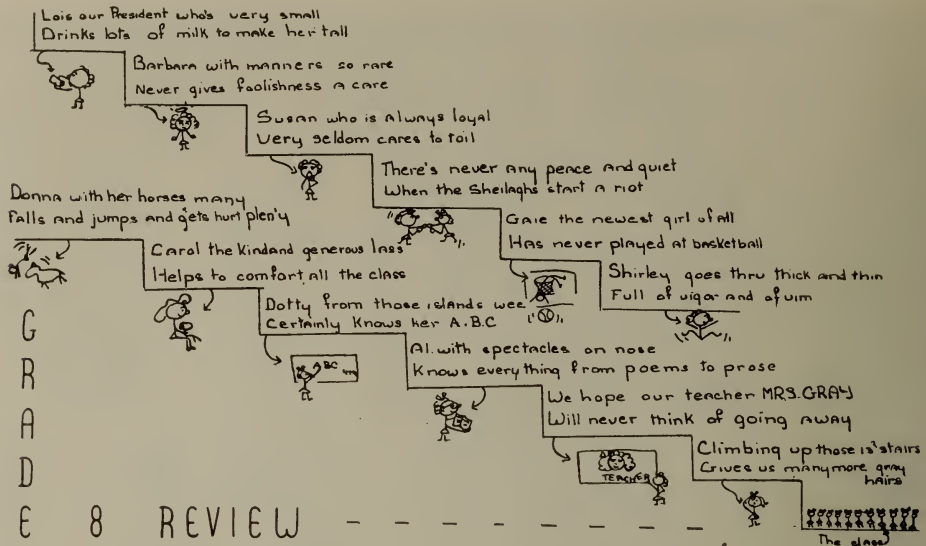 Lois our President who's very small
Drinks lots of milk to make her tall
Barbara with manners so rare
Never gives foolishness a care
Susan who is always loyal
Very seldom cares to toil
There's never any peace and quiet
When the Sheilaghs start a riot
Gaie the newest girl of all
Has never played at basketball
Shirley goes thru thick and thin
Full of vigor and of vim
Donna with her horses many
Falls and jumps and gets hurt plen'y
Carol the kind and generous lass
Helps to comfort all the class
Dotty from those islands wee
Certainly knows her A.B.C
BC
Al. with spectacles on nose
Knows everything from poems to prose
We hope our teacher MRS. GRAY
Will never think of going away
TEACHER
Climbing up those stairs
Gives us many more gray
hairs
The class
GRADE 8 REVIEW